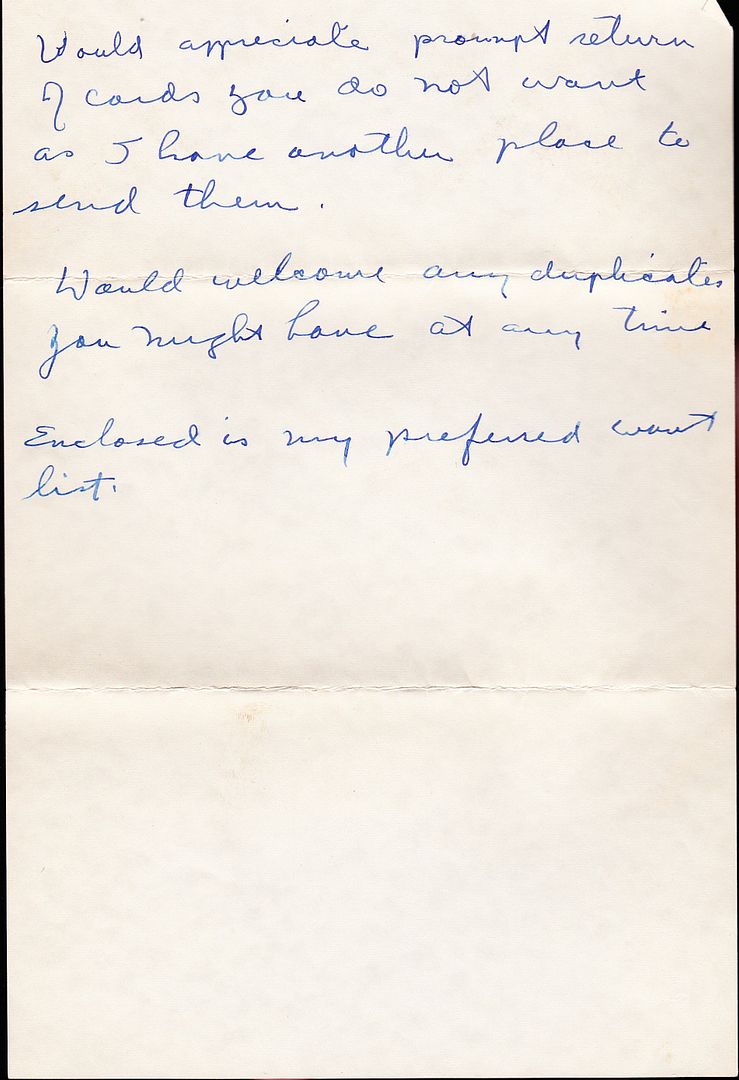 Would appreciate prompt return
of cards you do not want
as I have another place to
send them.
Would welcome any duplicates
you might have at any time
Enclosed is my preferred want
list.